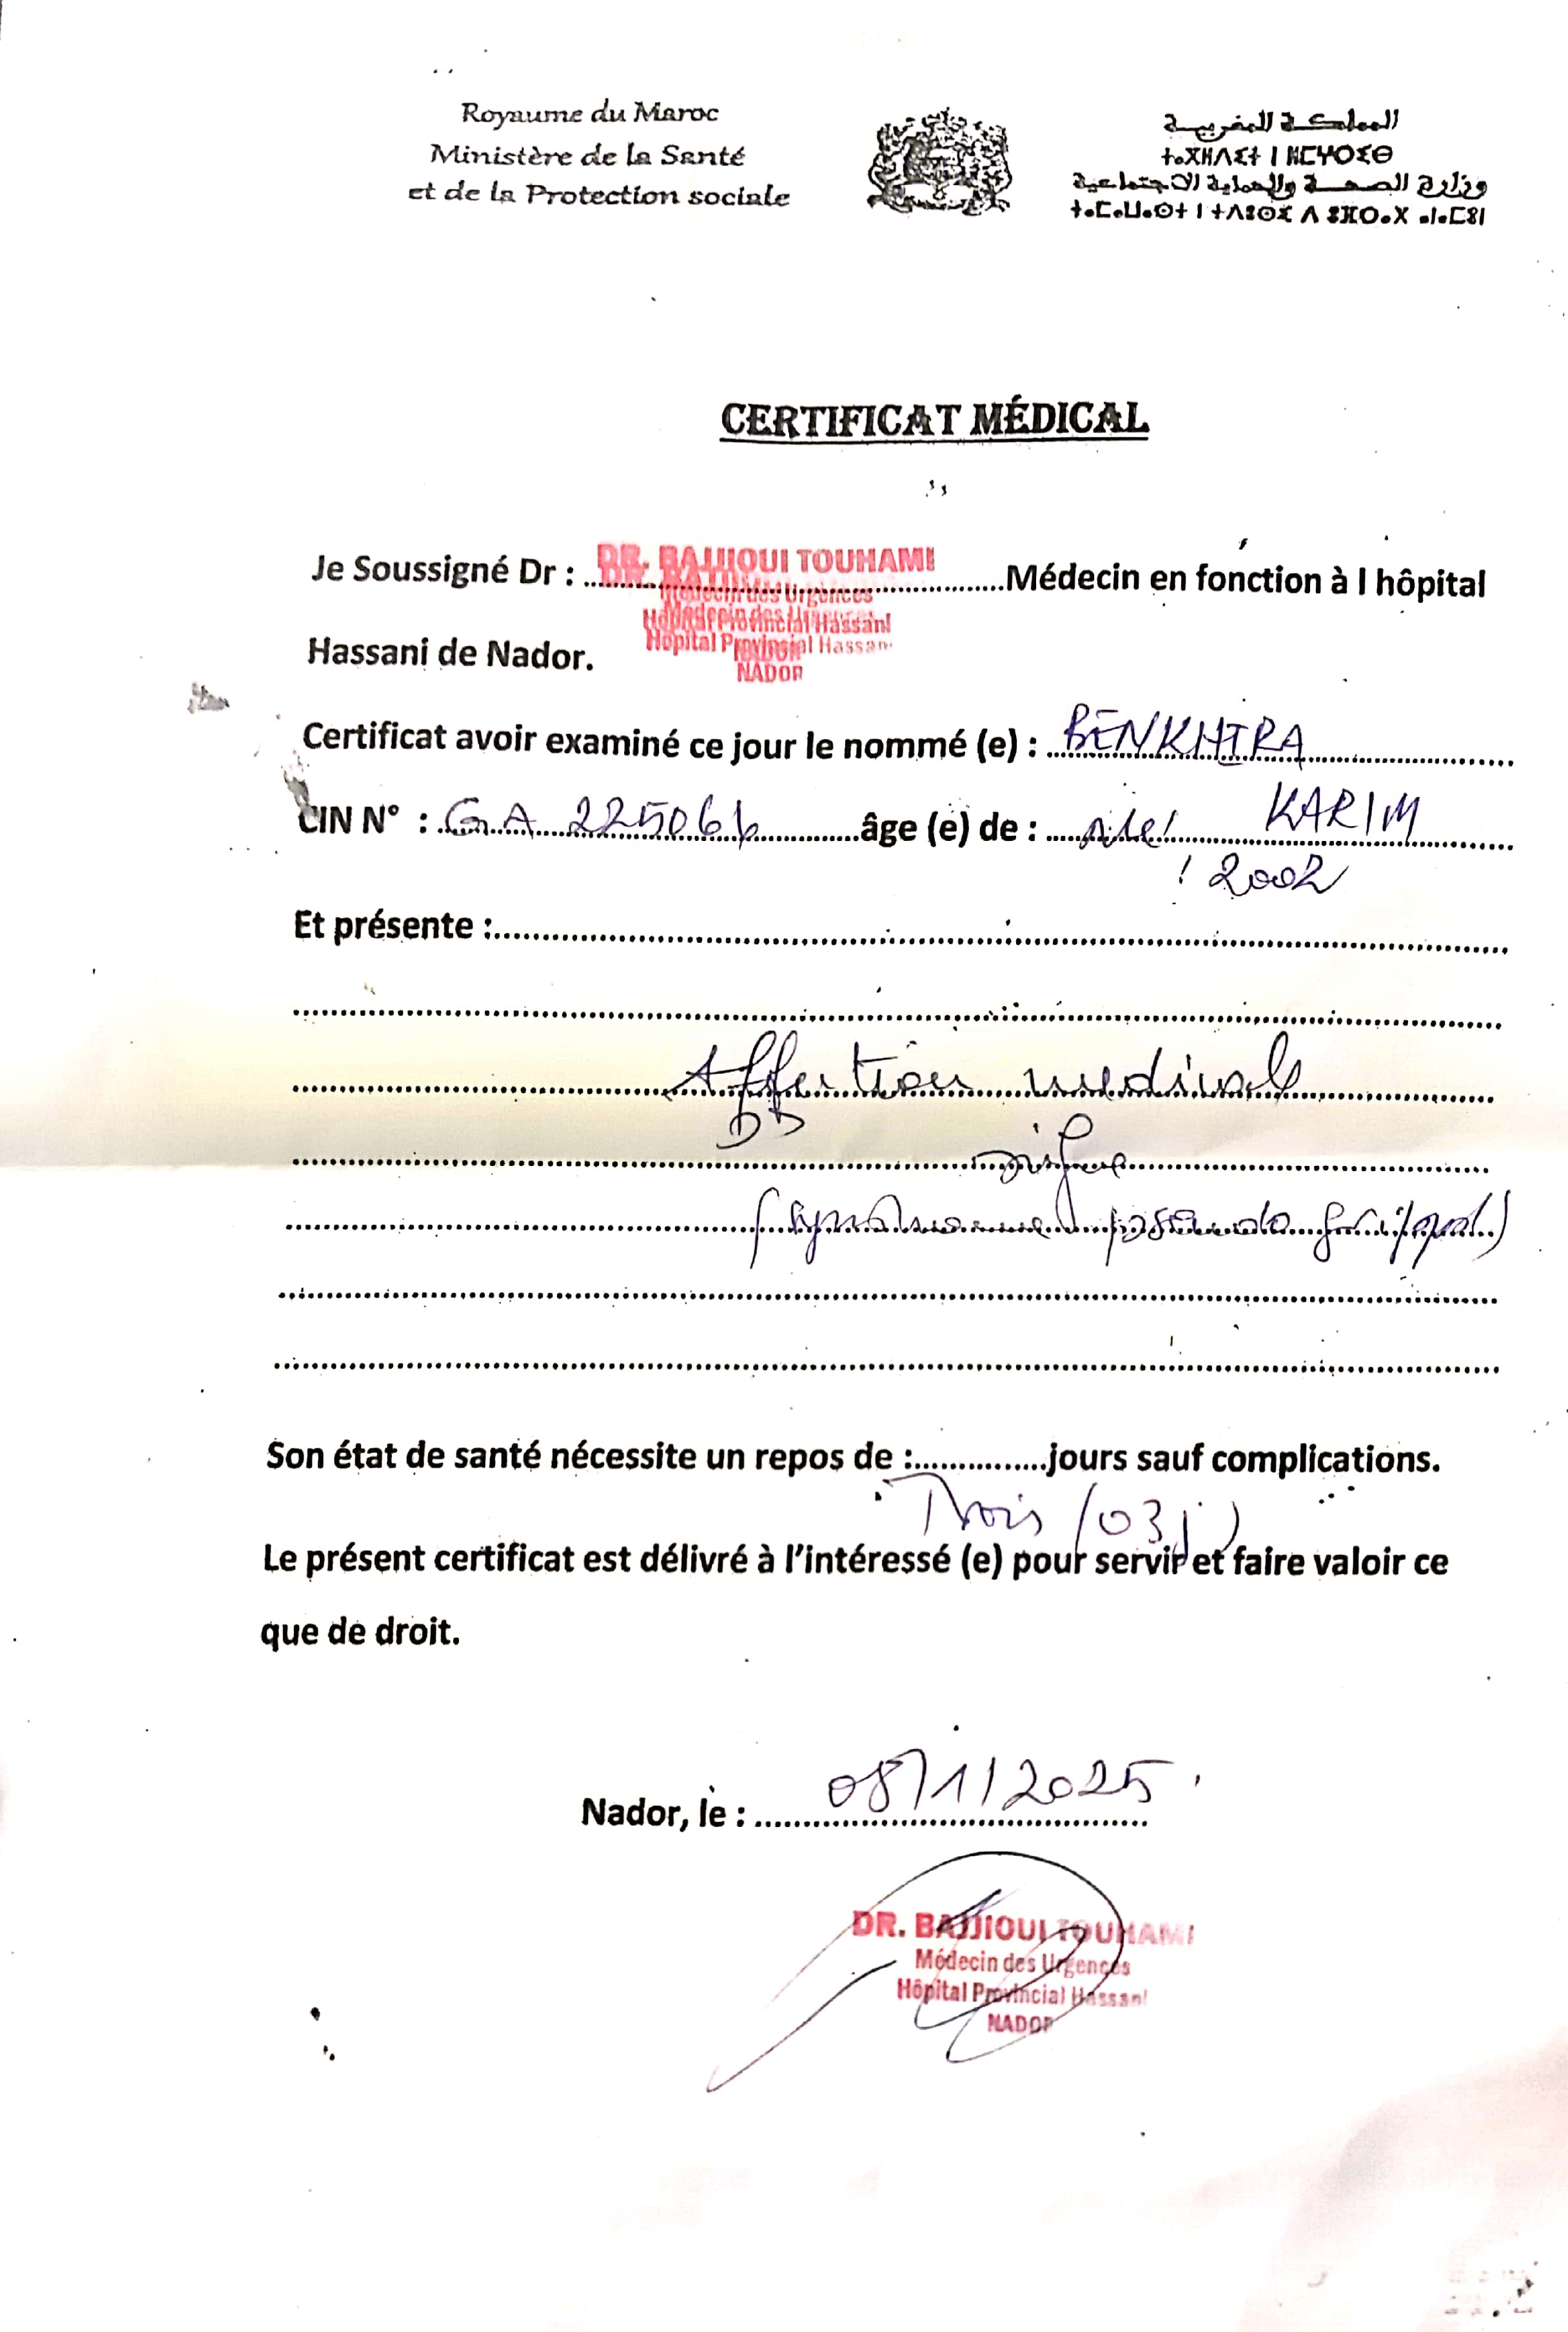 Royaume du Maroc
Ministère de la Santé
et de la Protection sociale
المملكة المغربية
ⵜⴰⴳⵍⴷⵉⵜ ⵏ ⵍⵎⵖⵔⵉⴱ
وزارة الصحة والحماية الاجتماعية
ⵜⴰⵎⴰⵡⴰⵙⵜ ⵏ ⵜⴷⵓⵙⵉ ⴷ ⵓⴼⵔⴰⴳ ⴰⵏⴰⵎⵓⵏ
CERTIFICAT MÉDICAL
Je Soussigné Dr : DR. BAJJIOUI TOUHAMI Médecin en fonction à l hôpital
Médecin des Urgences
Hôpital Provincial Hassani
NADOR
Hassani de Nador.
Certificat avoir examiné ce jour le nommé (e) : BENKHIRA
CIN N° : GA 225066 âge (e) de : KARIM
2002
Et présente :
Affection medicale
(syndrome pseudo grippal)
Son état de santé nécessite un repos de : jours sauf complications.
Trois (03j)
Le présent certificat est délivré à l'intéressé (e) pour servir et faire valoir ce
que de droit.
Nador, le : 08/1/2025
DR. BAJJIOUI TOUHAMI
Médecin des Urgences
Hôpital Provincial Hassani
NADOR